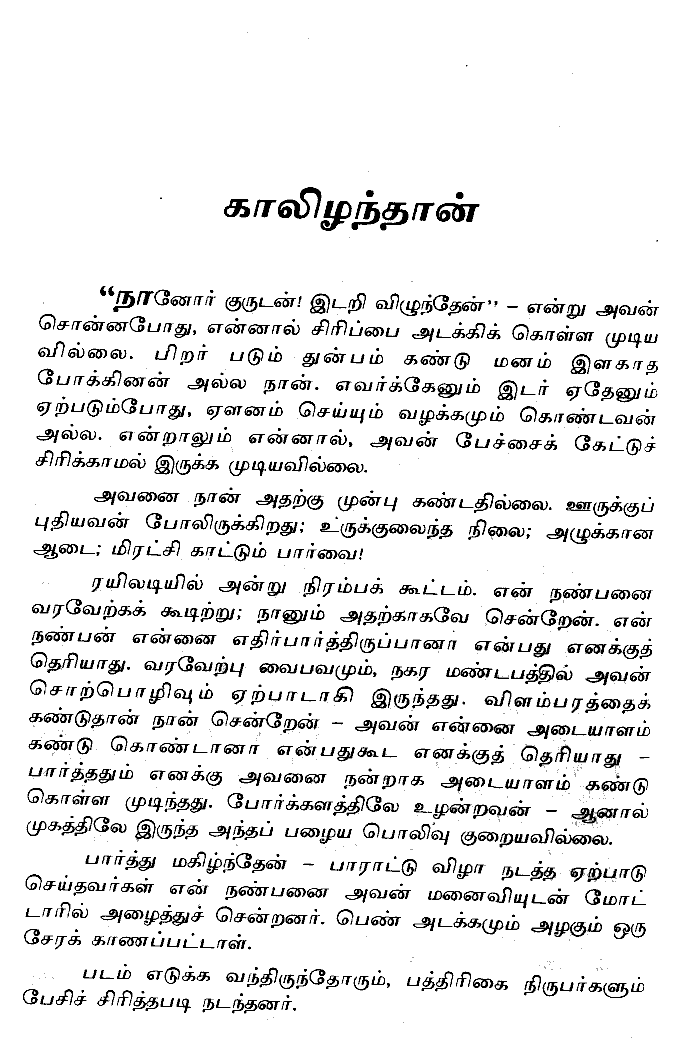 காலிழந்தான்
“நானோர் குருடன்! இடறி விழுந்தேன்” – என்று அவன்
சொன்னபோது, என்னால் சிரிப்பை அடக்கிக் கொள்ள முடிய
வில்லை. பிறர் படும் துன்பம் கண்டு மனம் இளகாத
போக்கினன் அல்ல நான். எவர்க்கேனும் இடர் ஏதேனும்
ஏற்படும்போது, ஏளனம் செய்யும் வழக்கமும் கொண்டவன்
அல்ல. என்றாலும் என்னால், அவன் பேச்சைக் கேட்டுச்
சிரிக்காமல் இருக்க முடியவில்லை.
அவனை நான் அதற்கு முன்பு கண்டதில்லை. ஊருக்குப்
புதியவன் போலிருக்கிறது; உருக்குலைந்த நிலை; அழுக்கான
ஆடை; மிரட்சி காட்டும் பார்வை!
ரயிலடியில் அன்று நிரம்பக் கூட்டம். என் நண்பனை
வரவேற்கக் கூடிற்று; நானும் அதற்காகவே சென்றேன். என்
நண்பன் என்னை எதிர்பார்த்திருப்பானா என்பது எனக்குத்
தெரியாது. வரவேற்பு வைபவமும், நகர மண்டபத்தில் அவன்
சொற்பொழிவும் ஏற்பாடாகி இருந்தது. விளம்பரத்தைக்
கண்டுதான் நான் சென்றேன் – அவன் என்னை அடையாளம்
கண்டு கொண்டானா என்பதுகூட எனக்குத் தெரியாது –
பார்த்ததும் எனக்கு அவனை நன்றாக அடையாளம் கண்டு
கொள்ள முடிந்தது. போர்க்களத்திலே உழன்றவன் – ஆனால்
முகத்திலே இருந்த அந்தப் பழைய பொலிவு குறையவில்லை.
பார்த்து மகிழ்ந்தேன் – பாராட்டு விழா நடத்த ஏற்பாடு
செய்தவர்கள் என் நண்பனை அவன் மனைவியுடன் மோட்
டாரில் அழைத்துச் சென்றனர். பெண் அடக்கமும் அழகும் ஒரு
சேரக் காணப்பட்டாள்.
படம் எடுக்க வந்திருந்தோரும், பத்திரிகை நிருபர்களும்
பேசிச் சிரித்தபடி நடந்தனர்.